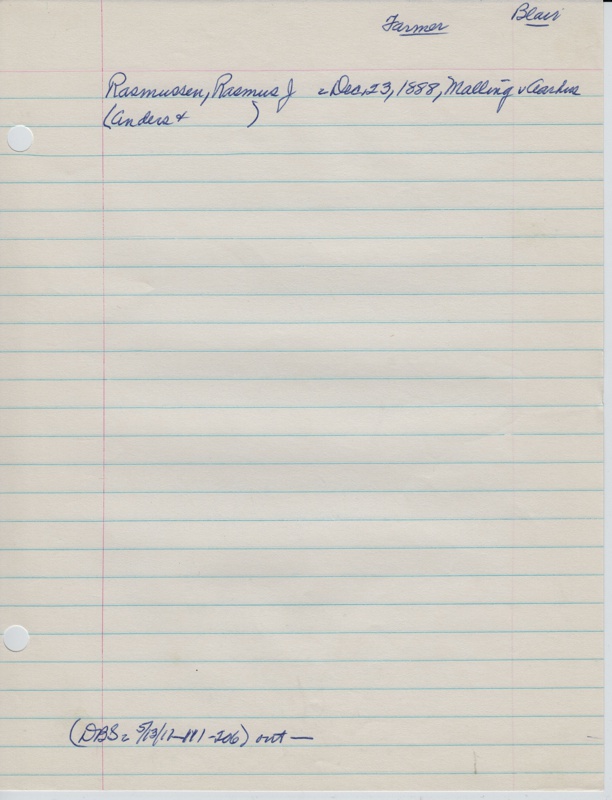 Farmer Blair
Rasmussen, Rasmus J Dec. 23, 1888, Malling v Aarhus
(Anders + )
(DBS 5/13/11 -206) out —